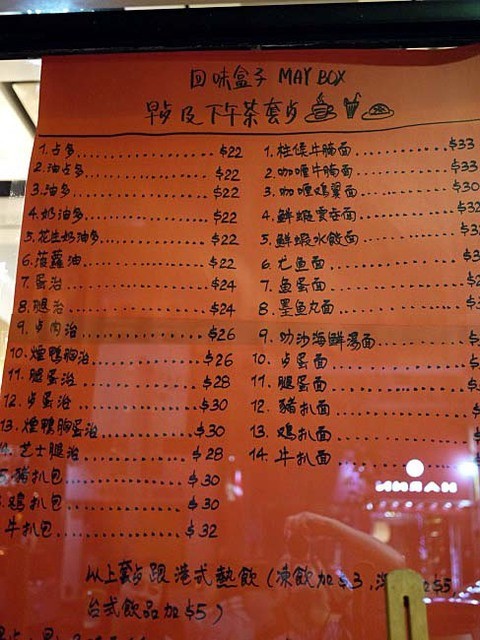 回味盒子 MAY BOX
早歺及下午茶套歺
1. 占多 $22
2. 油占多 $22
3. 油多 $22
4. 奶油多 $22
5. 花生奶油多 $22
6. 菠蘿油 $22
7. 蛋治 $24
8. 腿治 $24
9. 卢肉治 $26
10. 煙鴨胸治 $26
11. 腿蛋治 $28
12. 卢蛋治 $30
13. 煙鴨胸蛋治 $30
芝士腿治 $28
豬扒包 $30
鸡扒包 $30
牛扒包 $32
1. 柱侯牛腩面 $33
2. 咖喱牛腩面 $33
3. 咖喱鸡翼面 $30
4. 鮮蝦雲吞面
5. 鮮蝦水餃面
6. 尤鱼面
7. 鱼蛋面
8. 墨鱼丸面
9. 叻沙海鮮湯面
10. 卢蛋面
11. 腿蛋面
12. 豬扒面
13. 鸡扒面
14. 牛扒面
以上歺跟港式熱飲(凍飲加$3,
台式飲品加$5)